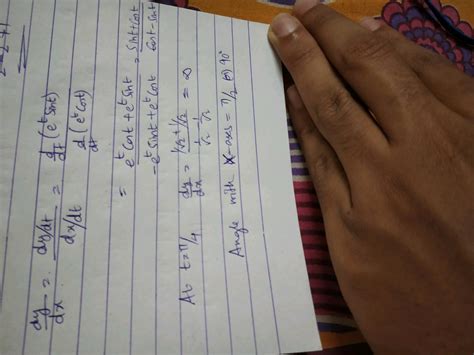 dy/dx = (dy/dt)/(dx/dt) = (d/dt (e^t Sint))/(d/dt (e^t Cost))
= (e^t Cost + e^t Sint)/(-e^t Sint + e^t Cost) = (Sint + Cost)/(Cost - Sint)
At t = π/4 dy/dx = (1/√2 + 1/√2)/(1/√2 - 1/√2) = ∞
Angle with X-axes = π/2 or 90°